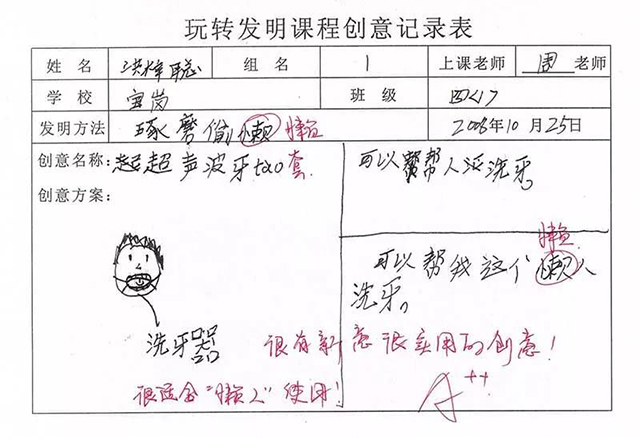 玩转发明课程创意记录表
姓名 洪烽聪 组名 1 上课老师 周 老师
学校 宝岗 班级 四(1)
发明方法 琢磨偷懒 懒 2008年10月25日
创意名称: 超超声波牙tao套
创意方案:
可以帮帮人洗牙。
懒
可以帮我这个懒人
洗牙。
洗牙器
很有新意很实用的创意!
很适合"懒人"使用!
A++